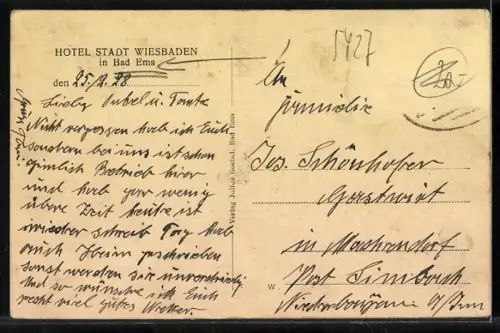 HOTEL STADT WIESBADEN
in Bad Ems
den 25./2. 28
5427
Lieber Onkel u. Tante
Nicht vergessen hab ich Euch
sondern bei uns ist schon
ziemlich Betrieb hier
und hab gar wenig
übere Zeit heute ist
wieder schreib Tag hab
auch Heim geschrieben
sonst werden sie
Und so wünsche ich Euch
recht viel gutes Wetter.
Verlag Julius Goebel, Bad Ems
An
Familie
Jos. Schönhofer
Gastwirt
in
Post Simbach
Niederbayern a/Inn